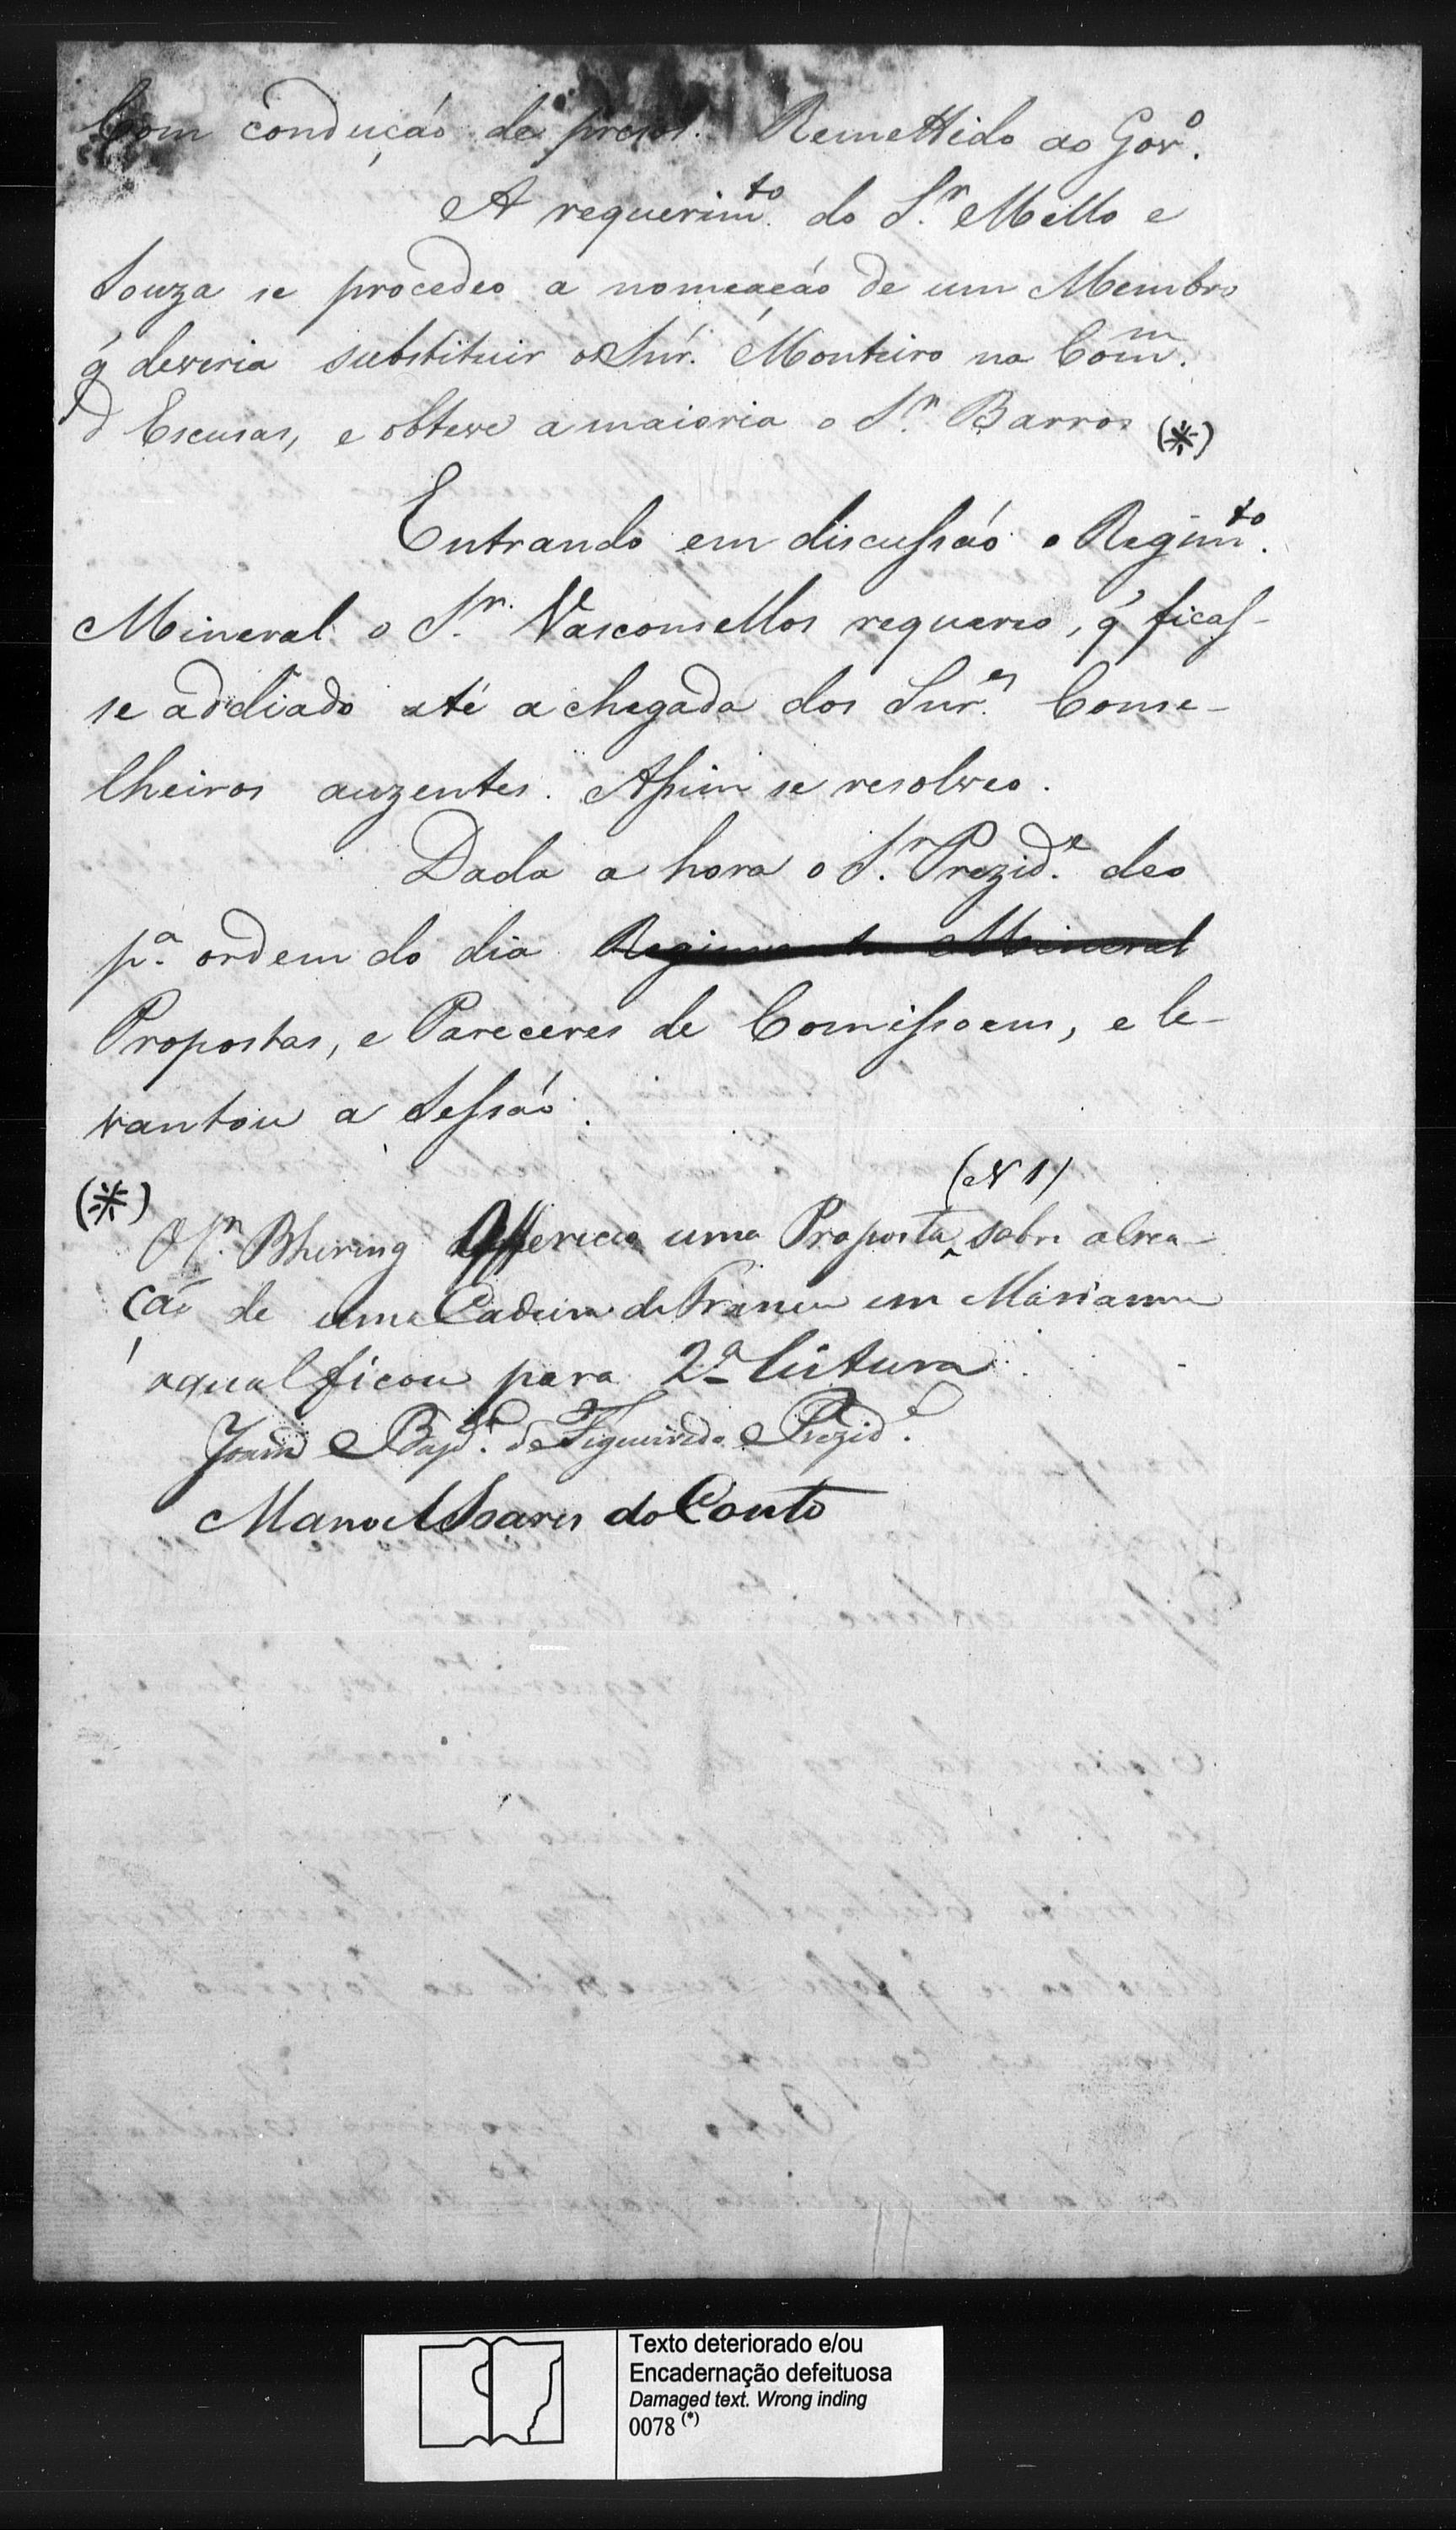 Com conduçaõ de prezos. Remettido ao Gov.º
A requerim.to do S.r Mello e
Souza se procedeo a nomeaçaõ de um Membro
q̃ deveria substituir o Snr. Monteiro na Com.m
d Escusas, e obteve a maioria o S.r Barros (*)
Entrando em discussaõ o Regim.to
Mineral o S.r Vasconsellos requereo, q̃ ficas-
se addiado até a chegada dos Snr.es Conse-
lheiros auzentes. Assim se resolveo.
Dada a hora o S.r Prezid.e deo
p.a ordem do dia Regimento Mineral
Propostas, e Pareceres de Comissoens, e le-
vantou a Sessaõ.
(N 1)
(*)
O S.r Bhering Offereceo uma Proposta sobre a Crea-
çaõ de uma Cadeira de Francez em Marianna
a qual ficou para 2.ª leitura
Joaõ Bap.ta de Figueiredo Prezid.e
Manoel Soares do Couto
Texto deteriorado e/ou
Encadernação defeituosa
Damaged text. Wrong inding
0078 (*)